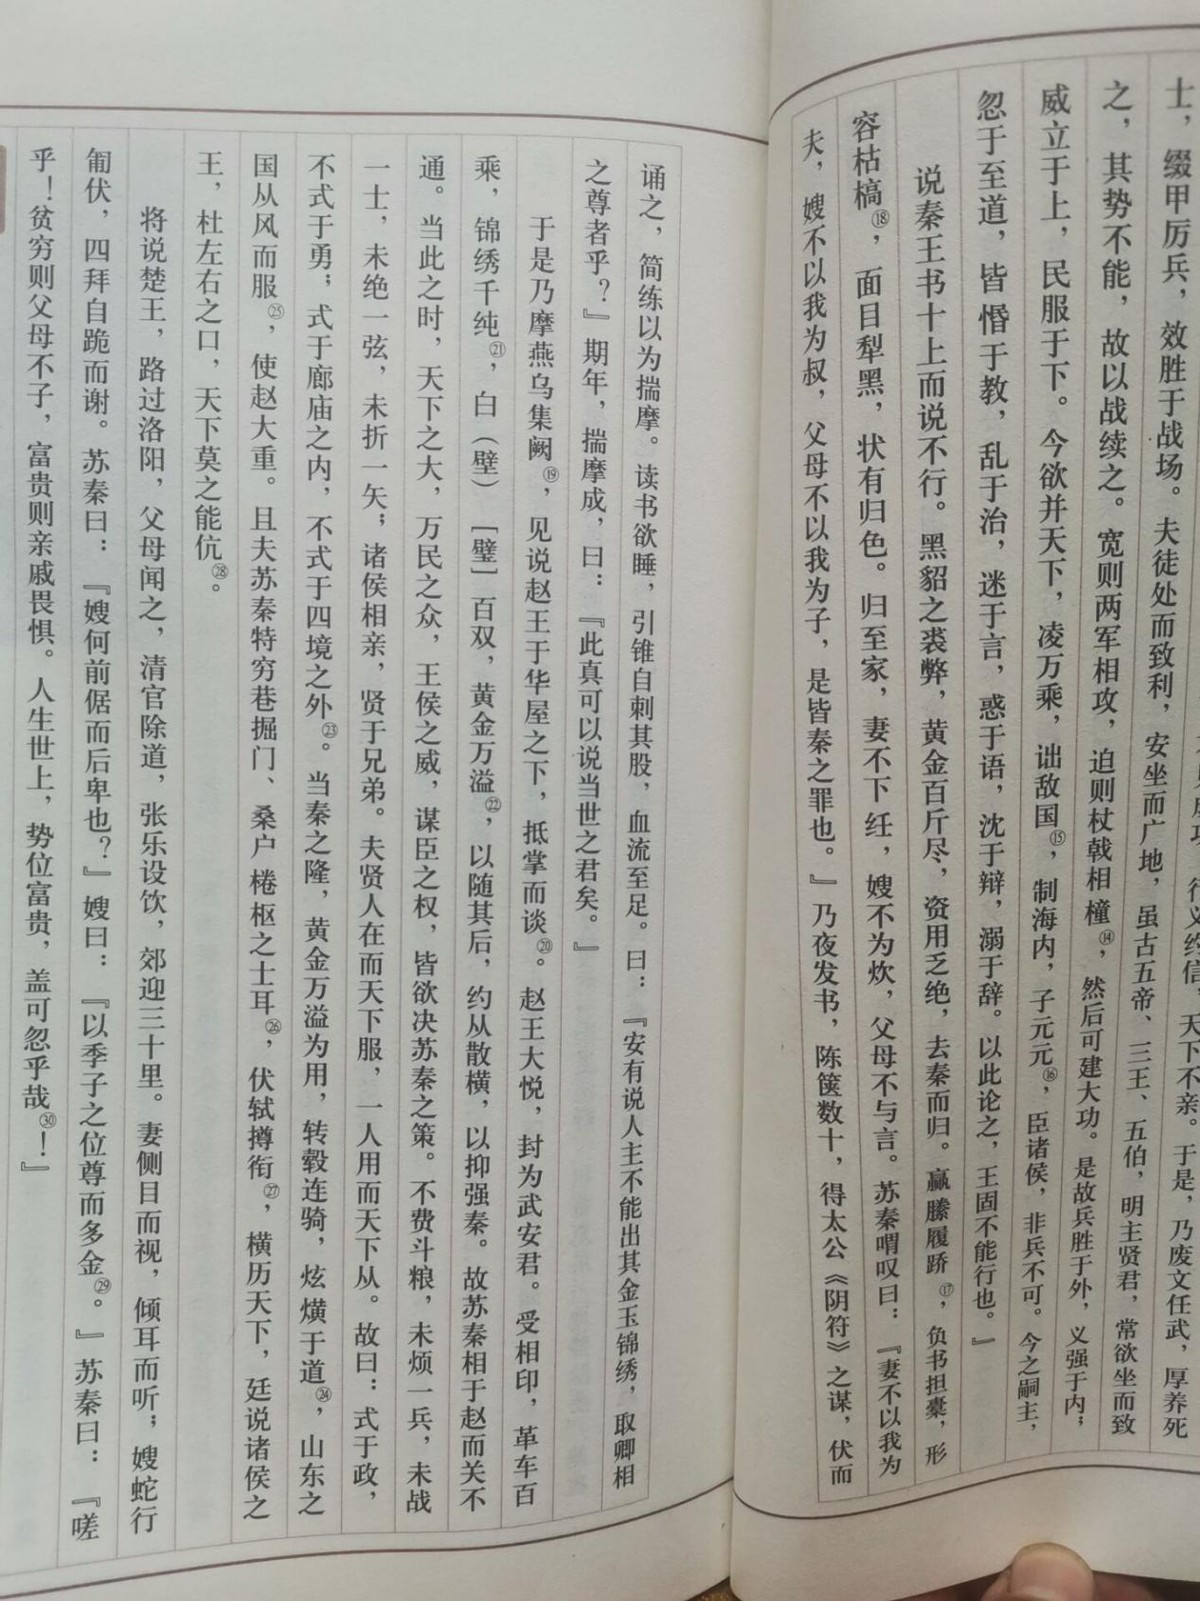 行义约信，天下不亲。于是，乃废文任武，厚养死
士，缀甲厉兵，效胜于战场。夫徒处而致利，安坐而广地，虽古五帝、三王、五伯，明主贤君，常欲坐而致
之，其势不能，故以战续之。宽则两军相攻，迫则杖戟相橦⑭，然后可建大功。是故兵胜于外，义强于内；
威立于上，民服于下。今欲并天下，凌万乘，诎敌国⑮，制海内，子元元⑯，臣诸侯，非兵不可。今之嗣主，
忽于至道，皆惛于教，乱于治，迷于言，惑于语，沈于辩，溺于辞。以此论之，王固不能行也。』
说秦王书十上而说不行。黑貂之裘弊，黄金百斤尽，资用乏绝，去秦而归。羸縢履蹻⑰，负书担橐，形
容枯槁⑱，面目犁黑，状有归色。归至家，妻不下纴，嫂不为炊，父母不与言。苏秦喟叹曰：『妻不以我为
夫，嫂不以我为叔，父母不以我为子，是皆秦之罪也。』乃夜发书，陈箧数十，得太公《阴符》之谋，伏而
诵之，简练以为揣摩。读书欲睡，引锥自刺其股，血流至足。曰：『安有说人主不能出其金玉锦绣，取卿相
之尊者乎？』期年，揣摩成，曰：『此真可以说当世之君矣。』
于是乃摩燕乌集阙⑲，见说赵王于华屋之下，抵掌而谈⑳。赵王大悦，封为武安君。受相印，革车百
乘，锦绣千纯㉑，白（壁）［璧］百双，黄金万溢㉒，以随其后，约从散横，以抑强秦。故苏秦相于赵而关不
通。当此之时，天下之大，万民之众，王侯之威，谋臣之权，皆欲决苏秦之策。不费斗粮，未烦一兵，未战
一士，未绝一弦，未折一矢；诸侯相亲，贤于兄弟。夫贤人在而天下服，一人用而天下从。故曰：式于政，
不式于勇；式于廊庙之内，不式于四境之外㉓。当秦之隆，黄金万溢为用，转毂连骑，炫熿于道㉔，山东之
国从风而服㉕，使赵大重。且夫苏秦特穷巷掘门、桑户棬枢之士耳㉖，伏轼撙衔㉗，横历天下，廷说诸侯之
王，杜左右之口，天下莫之能伉㉘。
将说楚王，路过洛阳，父母闻之，清宫除道，张乐设饮，郊迎三十里。妻侧目而视，倾耳而听；嫂蛇行
匍伏，四拜自跪而谢。苏秦曰：『嫂何前倨而后卑也？』嫂曰：『以季子之位尊而多金㉙。』苏秦曰：『嗟
乎！贫穷则父母不子，富贵则亲戚畏惧。人生世上，势位富贵，盖可忽乎哉㉚！』